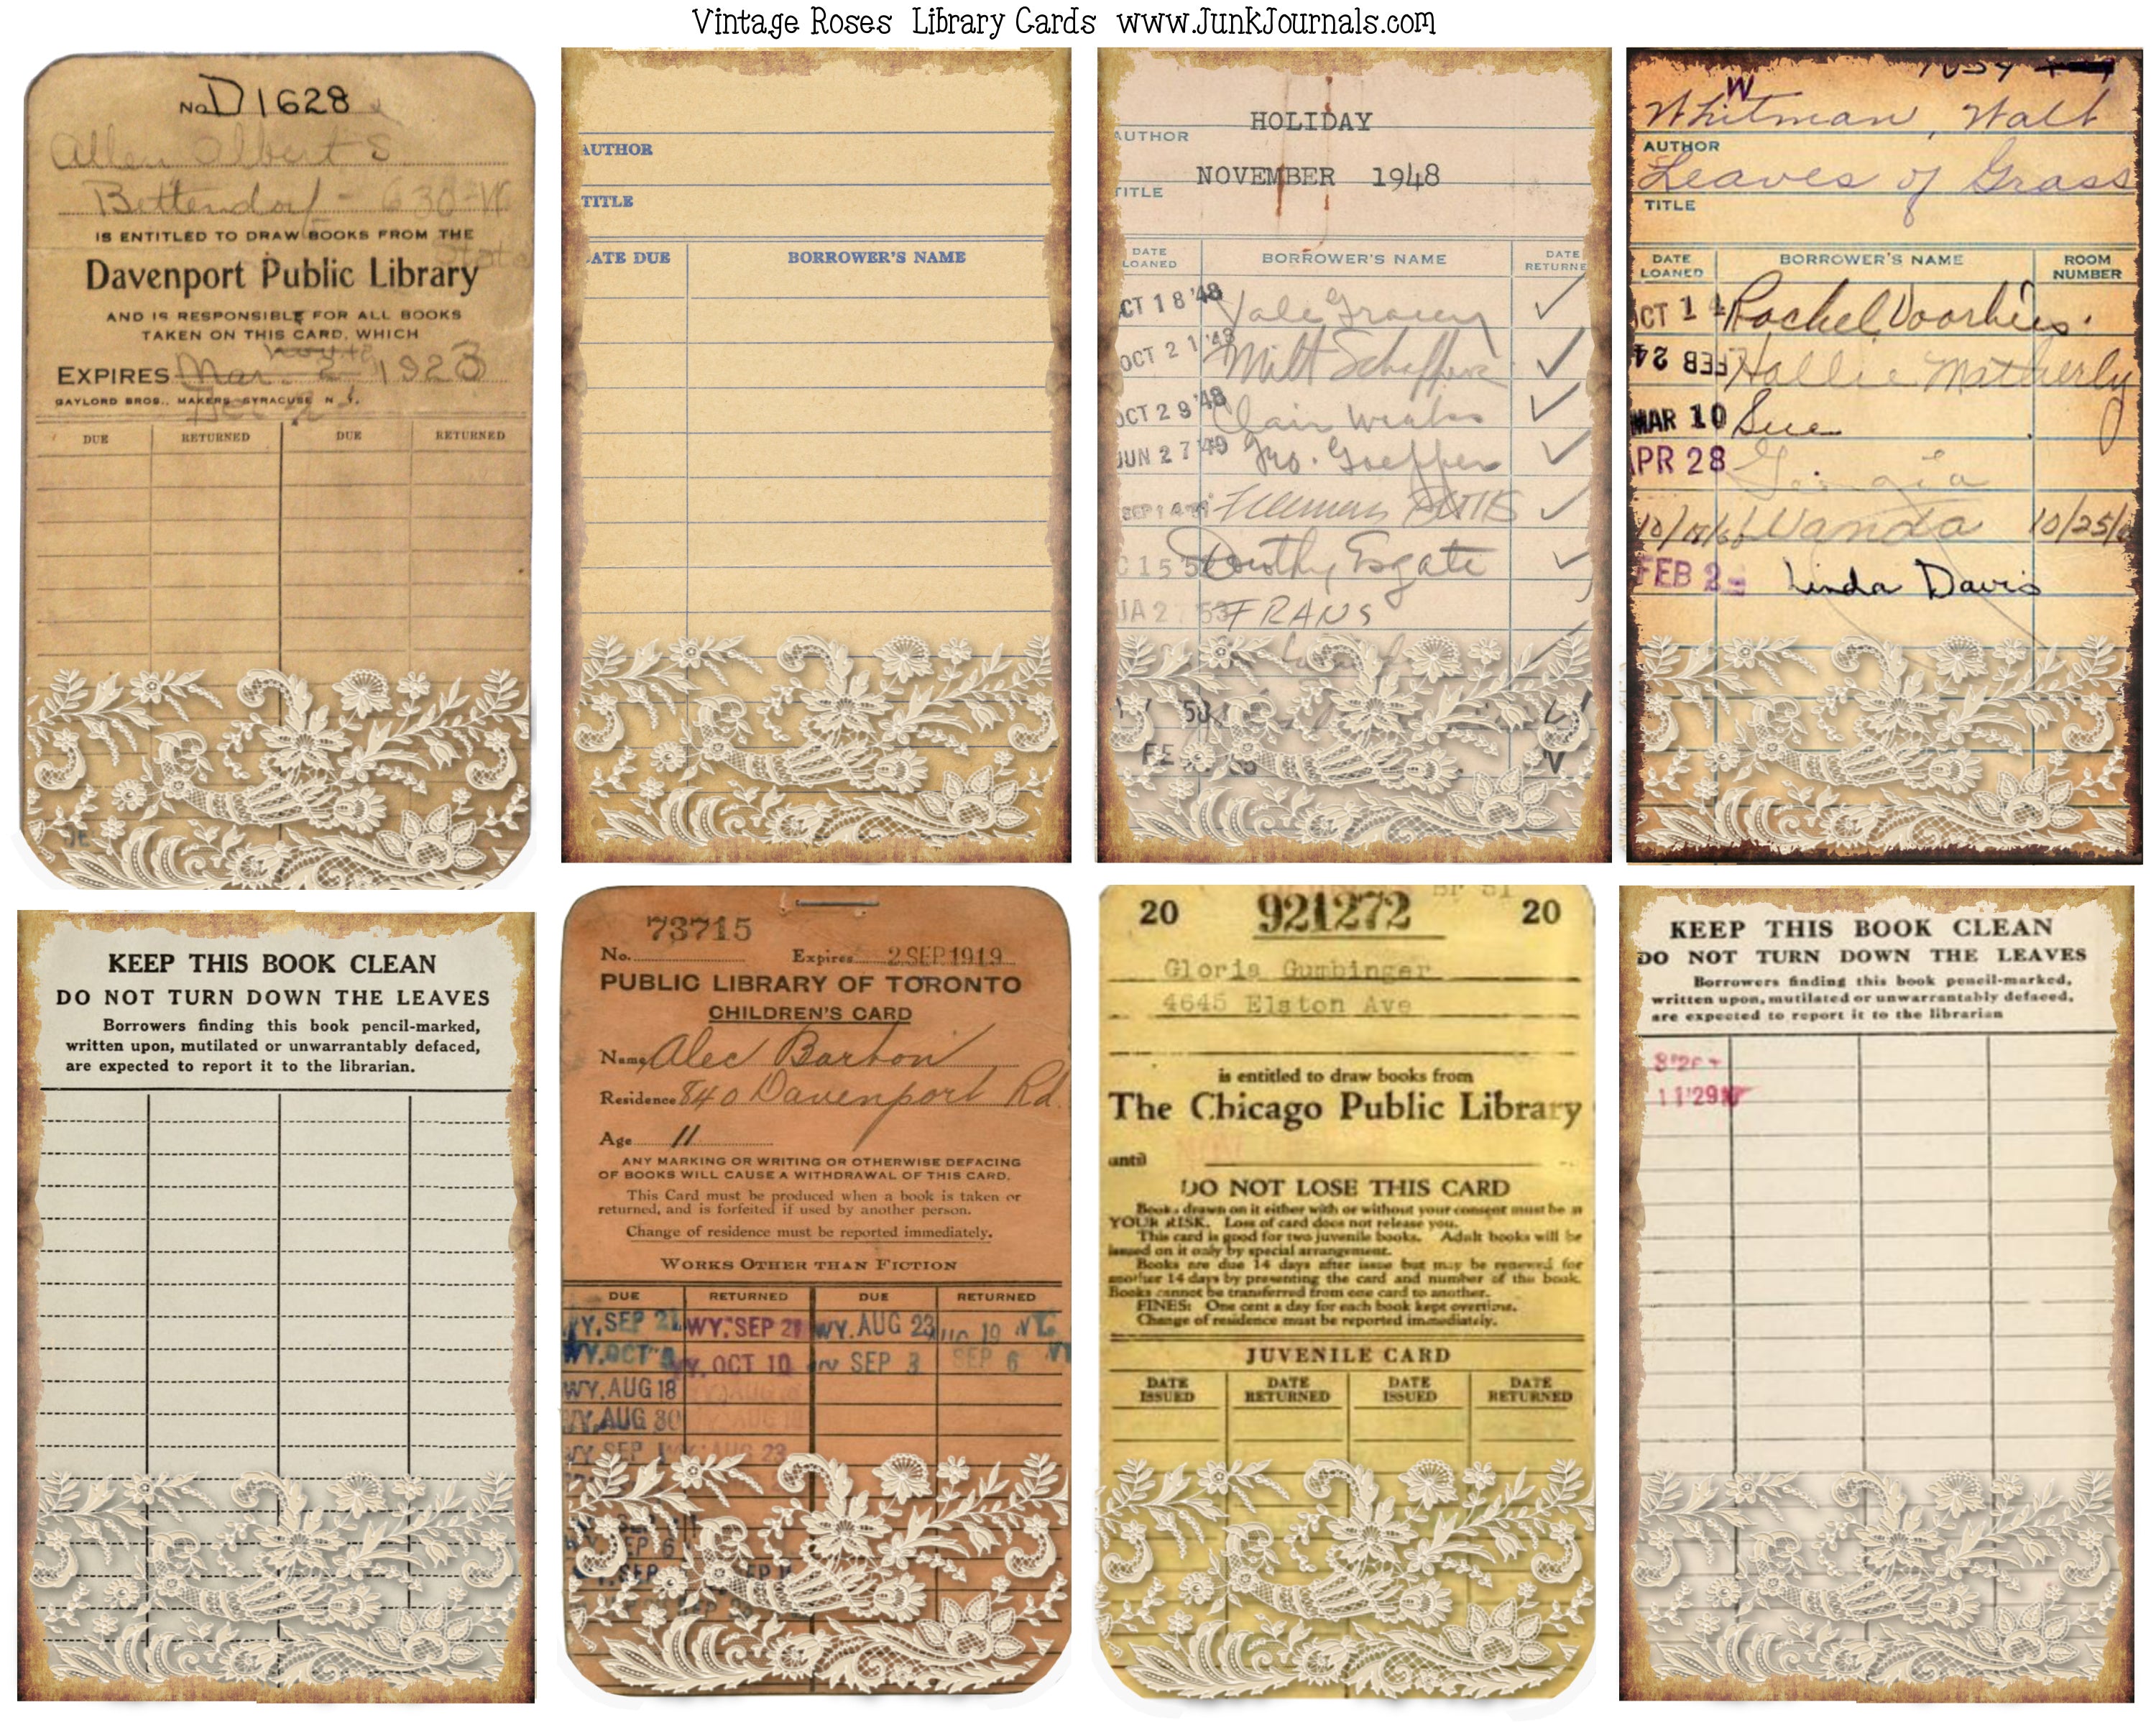 Vintage Roses Library Cards www.JunkJournals.com
No. D1628
Allen Albert S.
Bettendorf - 630-W
IS ENTITLED TO DRAW BOOKS FROM THE
Davenport Public Library
AND IS RESPONSIBLE FOR ALL BOOKS
TAKEN ON THIS CARD, WHICH
EXPIRES Mar. 2 1923
GAYLORD BROS., MAKERS, SYRACUSE N.Y.
DUE RETURNED DUE RETURNED
AUTHOR
TITLE
ATE DUE BORROWER'S NAME
HOLIDAY
AUTHOR
NOVEMBER 1948
TITLE
DATE LOANED BORROWER'S NAME DATE RETURNE
CT 18 '48
OCT 21 '48 Milt Schaffer
OCT 29 '48 Clair Weeks
JUN 27 '49 Geo.
SEP 14
Dorothy Esgate
JA 2 53 FRANS
58
FE
W
Whitman, Walt
AUTHOR
Leaves of Grass
TITLE
DATE LOANED BORROWER'S NAME ROOM NUMBER
OCT 14 Rachel Voorhies
FEB 24 Hallie
MAR 10 Sue
APR 28 Georgia
Wanda 10/25/6
FEB 2 Linda Davis
KEEP THIS BOOK CLEAN
DO NOT TURN DOWN THE LEAVES
Borrowers finding this book pencil-marked,
written upon, mutilated or unwarrantably defaced,
are expected to report it to the librarian.
73715
No. Expires 2 SEP 1919
PUBLIC LIBRARY OF TORONTO
CHILDREN'S CARD
Name Alec Barton
Residence 840 Davenport Rd.
Age 11
ANY MARKING OR WRITING OR OTHERWISE DEFACING
OF BOOKS WILL CAUSE A WITHDRAWAL OF THIS CARD.
This Card must be produced when a book is taken or
returned, and is forfeited if used by another person.
Change of residence must be reported immediately.
WORKS OTHER THAN FICTION
DUE RETURNED DUE RETURNED
WY. SEP 21 WY. SEP 21 WY. AUG 23 AUG 19
WY. OCT WY. OCT 10 SEP 3 SEP 6
WY. AUG 18
WY. AUG 30
WY SEP AUG 23
SEP 6
SEP
20 921272 20
Gloria Gumbinger
4645 Elston Ave
is entitled to draw books from
The Chicago Public Library
until
DO NOT LOSE THIS CARD
Books drawn on it either with or without your consent must be at
YOUR RISK. Loss of card does not release you.
This card is good for two juvenile books. Adult books will be
issued on it only by special arrangement.
Books are due 14 days after issue but may be renewed for
another 14 days by presenting the card and number of the book.
Books cannot be transferred from one card to another.
FINES: One cent a day for each book kept overtime.
Change of residence must be reported immediately.
JUVENILE CARD
DATE ISSUED DATE RETURNED DATE ISSUED DATE RETURNED
KEEP THIS BOOK CLEAN
DO NOT TURN DOWN THE LEAVES
Borrowers finding this book pencil-marked,
written upon, mutilated or unwarrantably defaced,
are expected to report it to the librarian
11'29